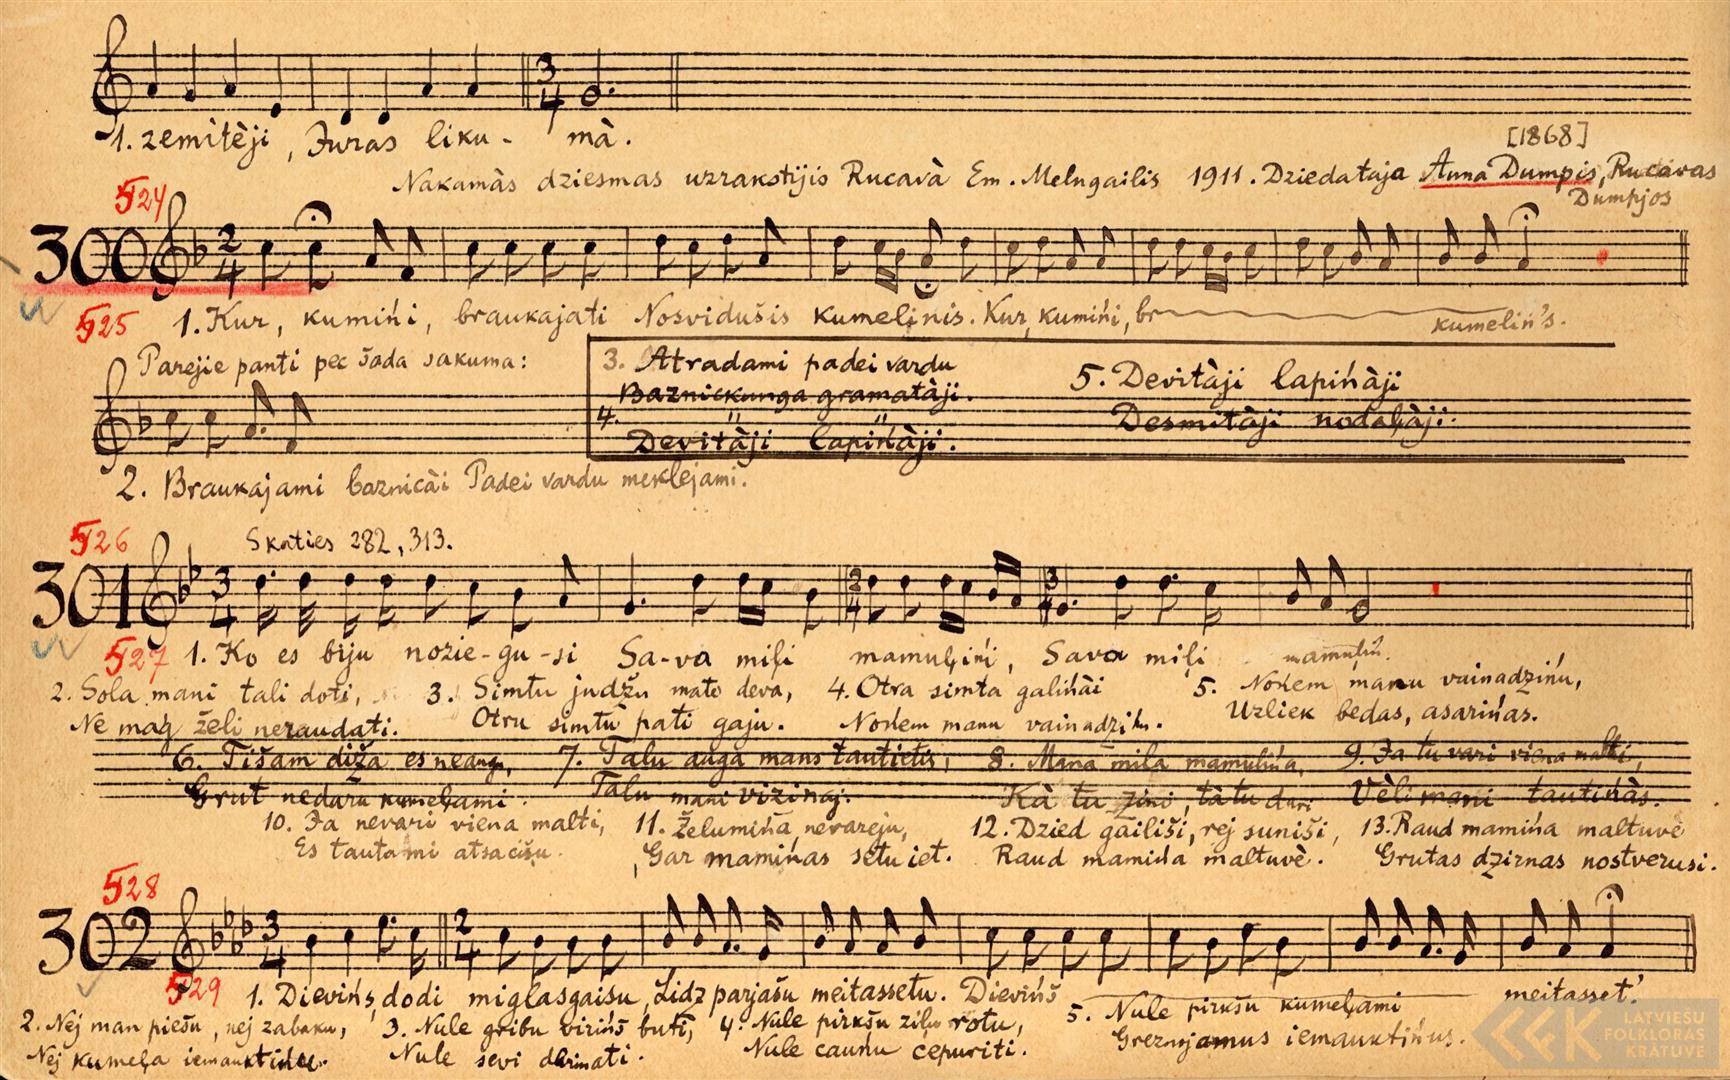 3
4
1. zemitèji, Juras liku - mà.
[1868]
Nakamàs dziesmas uzrakstijis Rucavà Em. Melngailis 1911. Dziedataja Anna Dumpis, Rucavas
Dumpjos
524
300 2
4
525
1. Kur, kumińi, braukajati Nosvidušis kumelinis. Kur, kumińi, br kumelin's.
Parejie panti pec šada sakuma:
3. Atradami padei vardu
Baznickunga gramatàji.
4. " "
Devitàji lapińàji.
5. Devitàji lapińàji
Desmitàji nodaļàji.
2. Braukajami baznicài Padei vardu meklejami.
526
Skaties 282, 313.
301 3
4 2
4 3
4
527
1. Ko es biju nozie-gu-si Sa-va miļi mamuļińi, Sava miļi
2. Sola mani tali doti,
Ne mag želi neraudati.
3. Simtu judžu mate deva,
Otru simtu pati gaju.
4. Otra simta galińài
Nońem manu vainadziń.
5. Nońem manu vainadzińu,
Uzliek bedas, asarińas.
6. Tišam diža es neaugu,
Grut nedaru kumeļami.
7. Talu auga mans tautietis,
Talu mani vizinaj.
8. Mana mila mamulińa,
Kà tu zini, tà tu dari
9. Ja tu vari viena malti,
Vèli mani tautińàs.
10. Ja nevari viena malti,
Es tautami atsacišu.
11. Želumińa nevareju,
Gar mamińas setu iet.
12. Dzied gailiši, rej suniši,
Raud mamińa maltuvè.
13. Raud mamińa maltuvè
Grutas dzirnas nostverusi.
528
302 3
4 2
4
529
1. Dievińš, dodi miglasgaisu, Lidz parjašu meitassetu. Dievińš meitasset'
2. Nej man piešu, nej zabaku,
Nej kumeļa iemauktińu.
3. Nule gribu virińš buti,
Nule sevi darinati.
4. Nule pirkšu zilu rotu,
Nule cauńu cepuriti.
5. Nule pirkšu kumeļami
Greznjamus iemauktińus.
LATVIEŠU
FOLKLORAS
KRATUVE